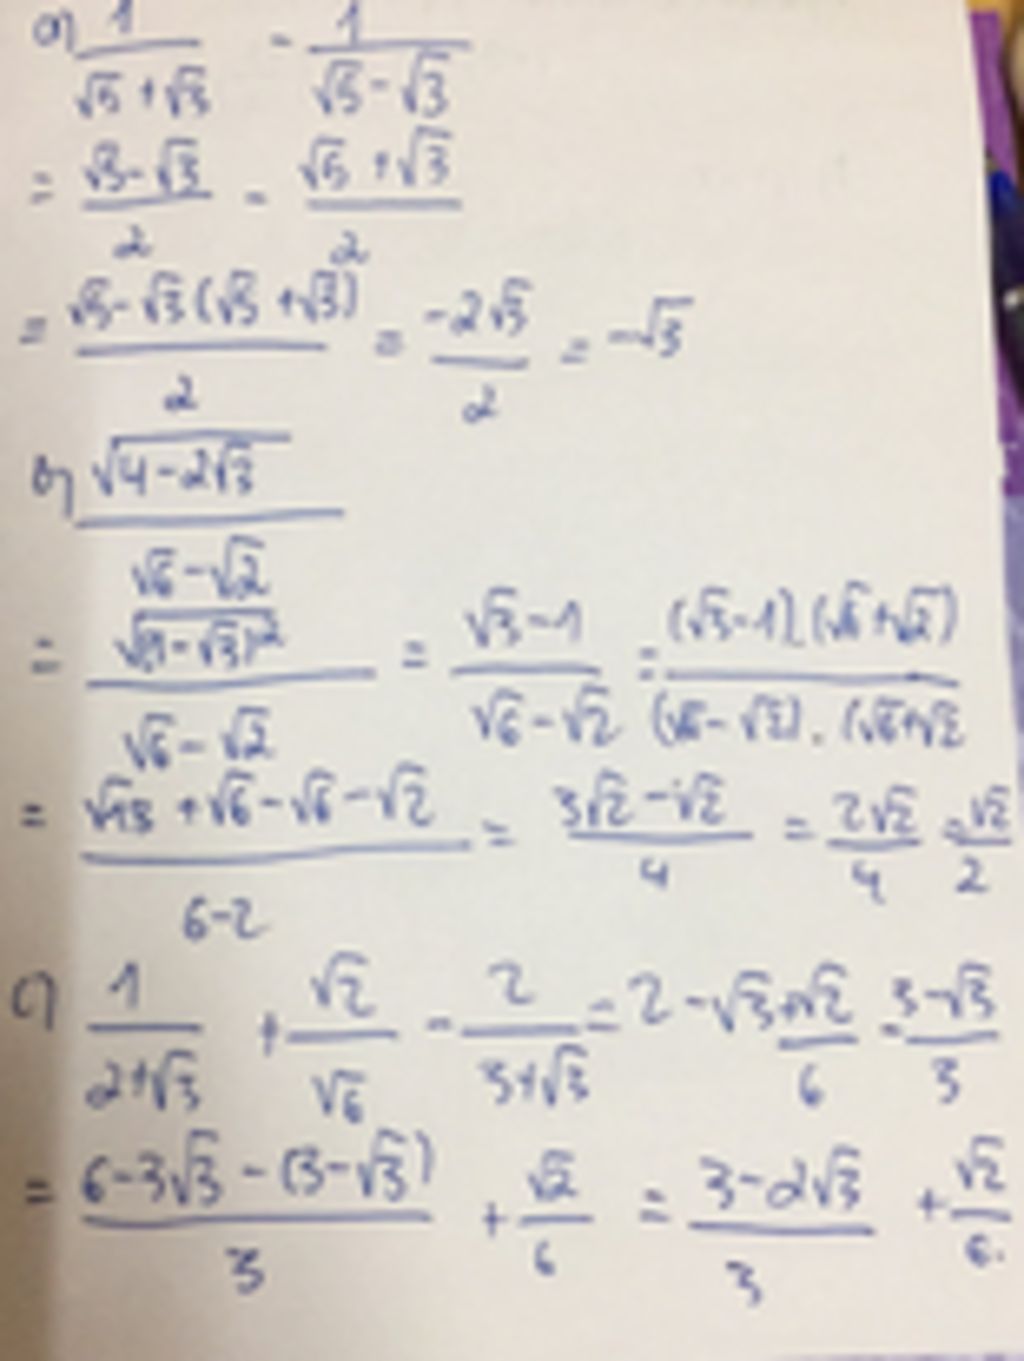 a) 1/(√5 + √3) - 1/(√5 - √3)
= (√5 - √3)/2 - (√5 + √3)/2
= (√5 - √3 (√5 + √3))/2 = (-2√3)/2 = -√3
b) √(4 - 2√3)/(√6 - √2)
= √((1 - √3)²)/(√6 - √2) = (√3 - 1)/(√6 - √2) = ((√3 - 1).(√6 + √2))/((√6 - √2).(√6 + √2
= (√18 + √6 - √6 - √2)/(6 - 2) = (3√2 - √2)/4 = 2√2/4 = √2/2
c) 1/(2 + √3) + √2/√6 - 2/(3 + √3) = 2 - √3 + √2/6 - (3 - √3)/3
= (6 - 3√3 - (3 - √3))/3 + √2/6 = (3 - 2√3)/3 + √2/6.